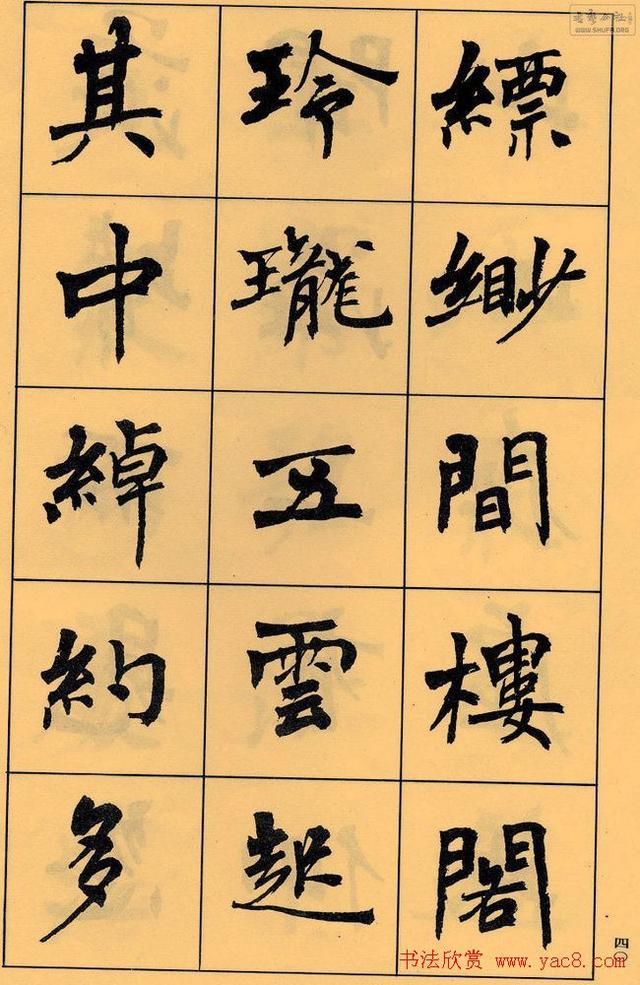 縹緲間樓閣
玲瓏五雲起
其中綽約多
四〇
书法欣赏 www.yac8.com
WWW.SHUFA.ORG